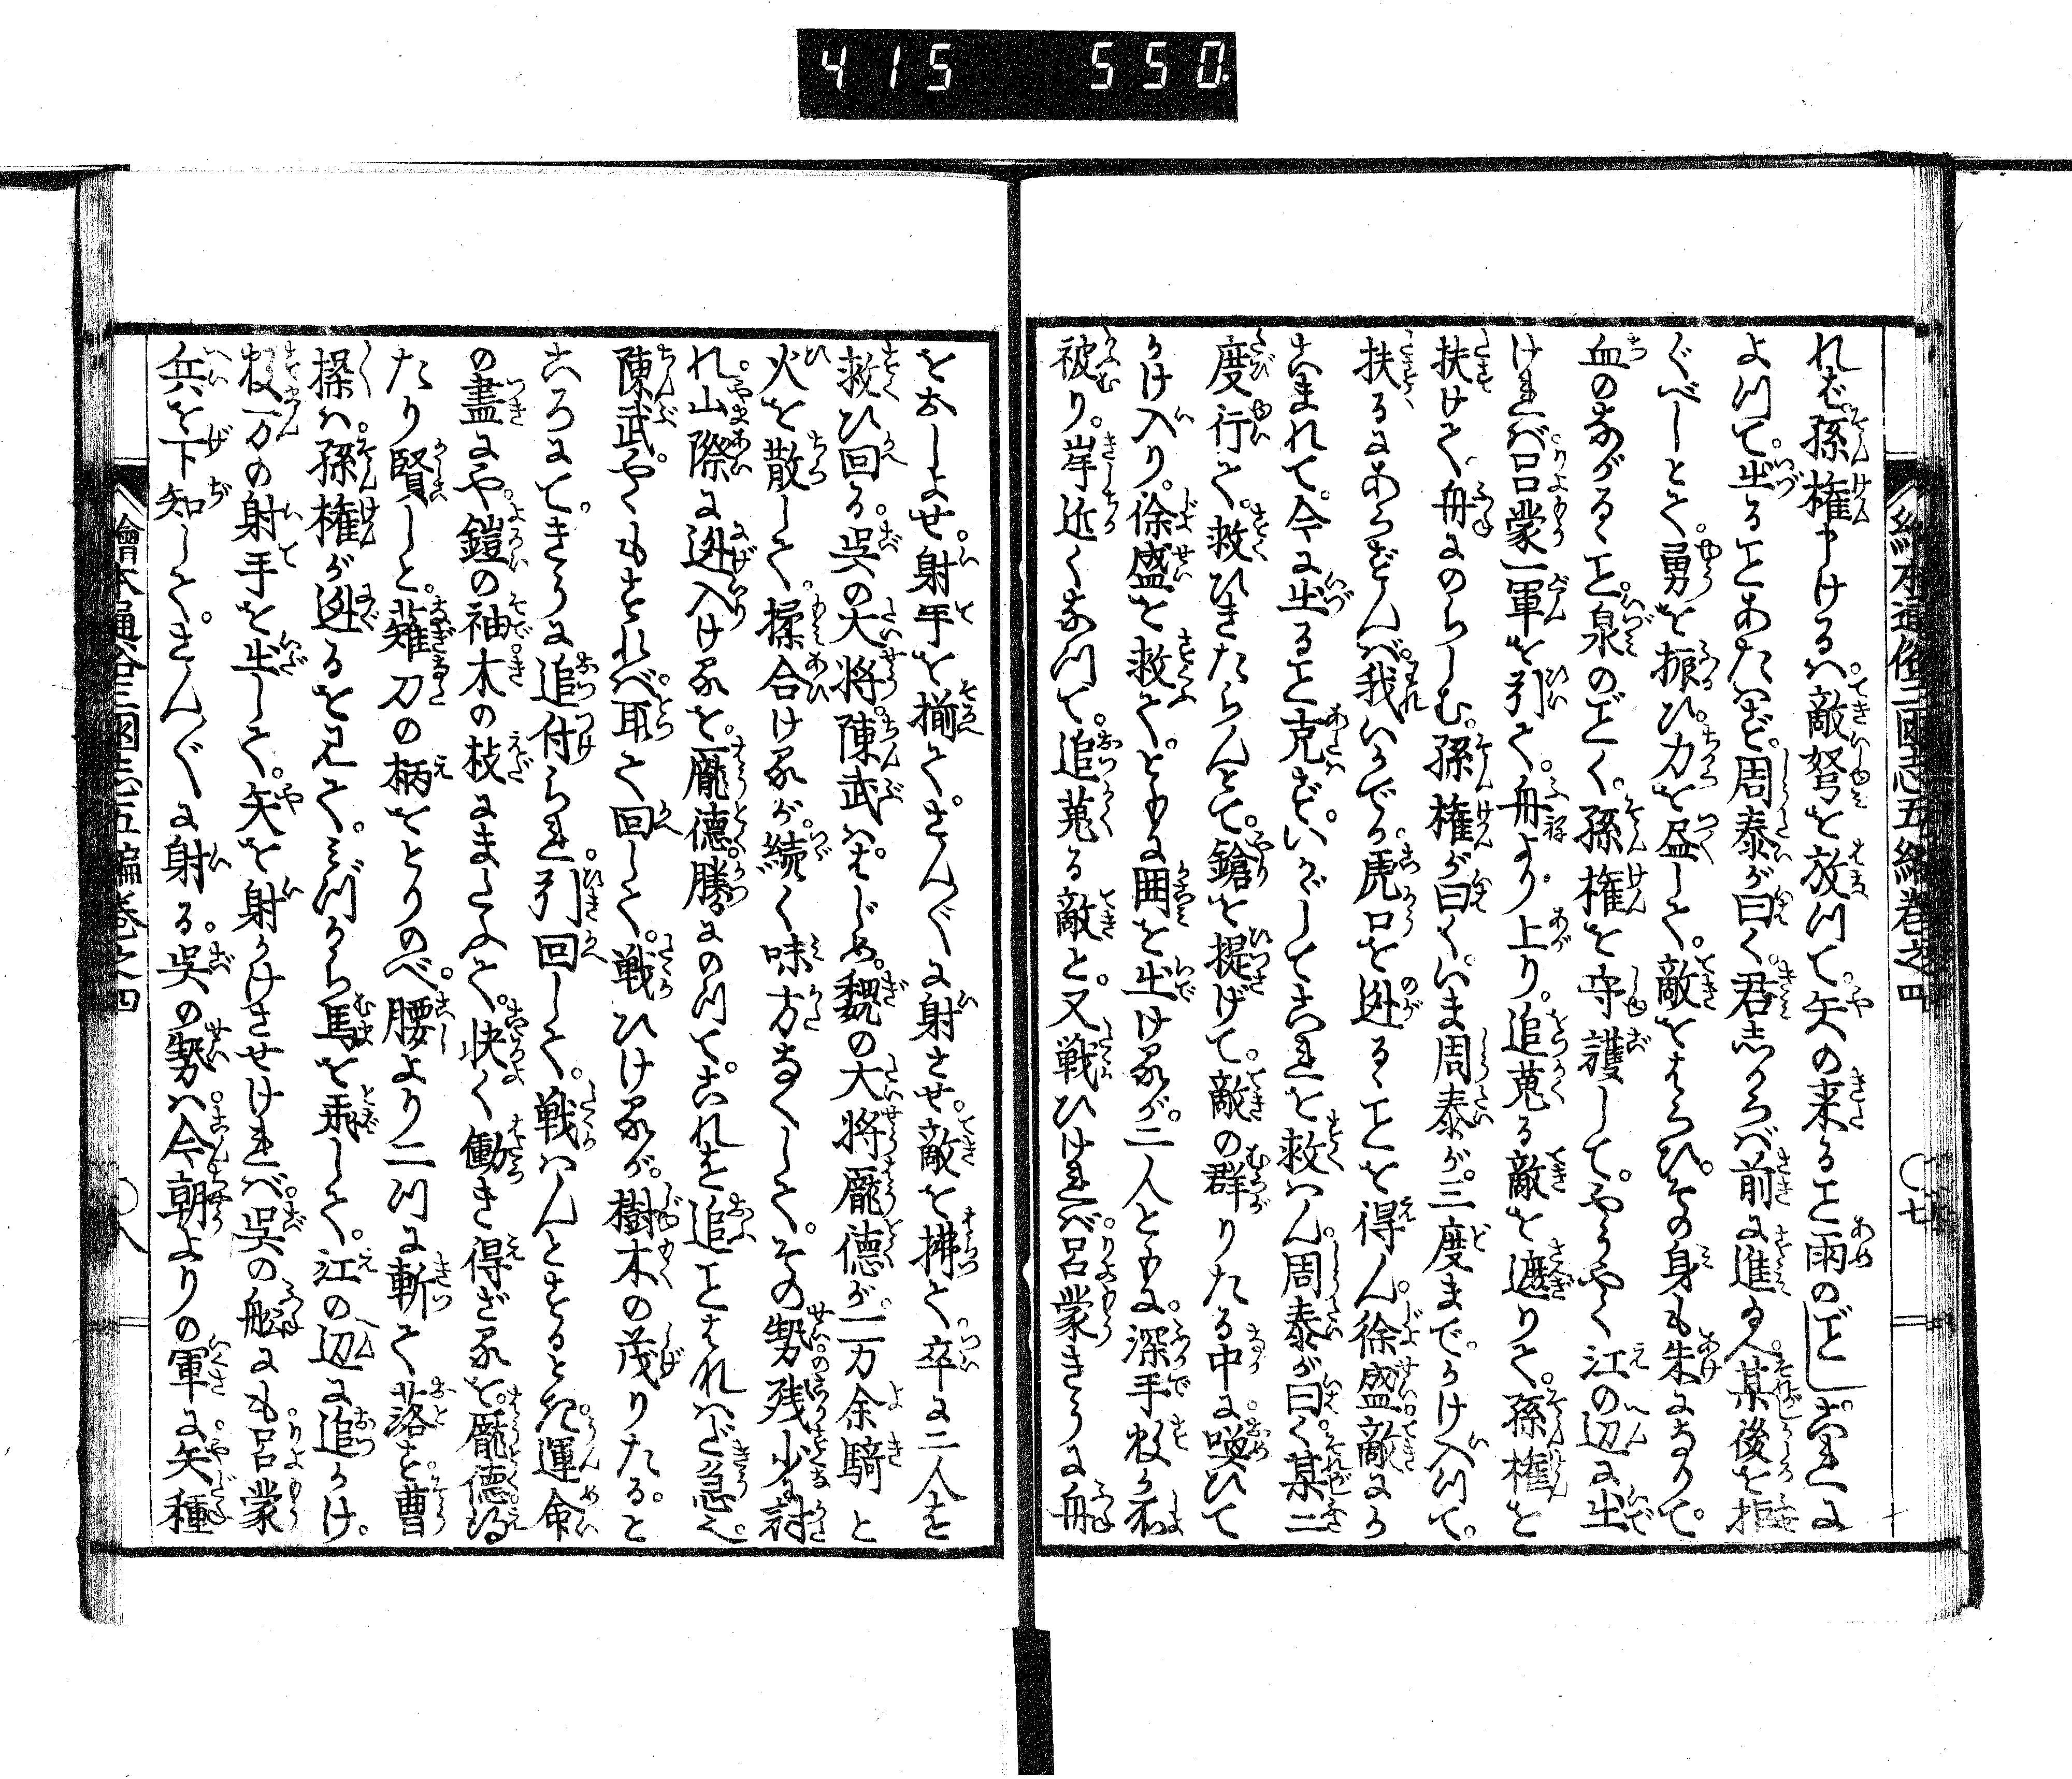 415 550.
繪本通俗三國志五編巻之四
〇七
れば孫権申けるハ敵弩を放つて矢の来ること雨のごとしこれに
よつて出ることあたハず周泰が曰く君しからバ前に進め某後を拒
ぐべしとて勇を振ひ力を盡して敵をはらひその身も朱になりて
血のながるゝこと泉のごとく孫権を守護してやうやく江の辺に出
けれバ呂蒙一軍を引て舟より上り追蒐る敵を遮りて孫権を
扶けて舟にのらしむ孫権が曰くいま周泰が三度までかけ入つて
扶るにあらずんバ我いかでか虎口を逃るゝことを得ん徐盛敵にか
こまれて今に出ること克ずいかがしてこれを救ハん周泰が曰く某二
度行て救ひきたらんとて鎗を提げて敵の群りたる中に喚ひて
かけ入り徐盛を救てともに囲を出けるが二人ともに深手数か所
被り岸近くなつて追蒐る敵と又戦ひけれバ呂蒙きうに舟
をおしよせ射手を揃てさんぐに射させ敵を拂て卒に二人を
救ひ回る呉の大将陳武はじめ魏の大将龐徳が一万余騎と
火を散して揉合けるが続く味方なくしてその勢残少に討
れ山際に逃入けるを龐徳勝にのつてこれを追ことはなハだ急也
陳武やくもすれバ取て回して戦ひけるが樹木の茂りたると
ころにてきうに追付られ引回して戦ハんとするとき運命
の盡にや鎧の袖木の枝にまとふて快く働き得ざるを龐徳得
たり賢しと薙刀の柄をとりのべ腰より二つに斬て落す曹
操ハ孫権が逃るを見てみづから馬を飛して江の辺に追かけ
数万の射手を出して矢を射かけさせけれバ呉の舩にも呂蒙
兵を下知してさんぐに射る呉の勢ハ今朝よりの軍に矢種
繪本通俗三國志五編巻之四
〇八